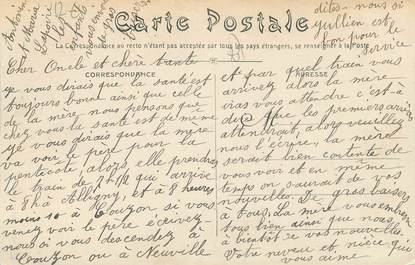 Carte Postale
La Correspondance au recto n'étant pas acceptée par tous les pays étrangers, se renseigner à la Poste
CORRESPONDANCE
ADRESSE
Cher Oncle et chère tante
je vous dirais que la santé est
toujours bonne ainsi que celle
de la mère nous pensons que
chez vous la santé est de même
je vous dirais que la mère
va voir le père pour la
pentecôte, alors elle prendrez
le train de qui arrive
à 8h à Albigny, et à 8 heures
moins 10 à Couzon si vous
venez voir le père écrivez
nous si vous descendez à
Couzon ou à Neuville
et par quel train vous
arrivez alors la mère
vras vous attendre c'est-à
dire que les premiers arrivés
attendrait, alors veuillez
nous l'écrire, la mère
serait bien contente de
vous voir et en même
temps on saurait de vos
nouvelles. De gros baisers
à tous, la mère vous embrasse
tous bien ainsi que nous,
à bientôt de vos nouvelles.
Votre neveu et nièce qui
vous aime
dites-nous si
Jullien est
bon pour le
service